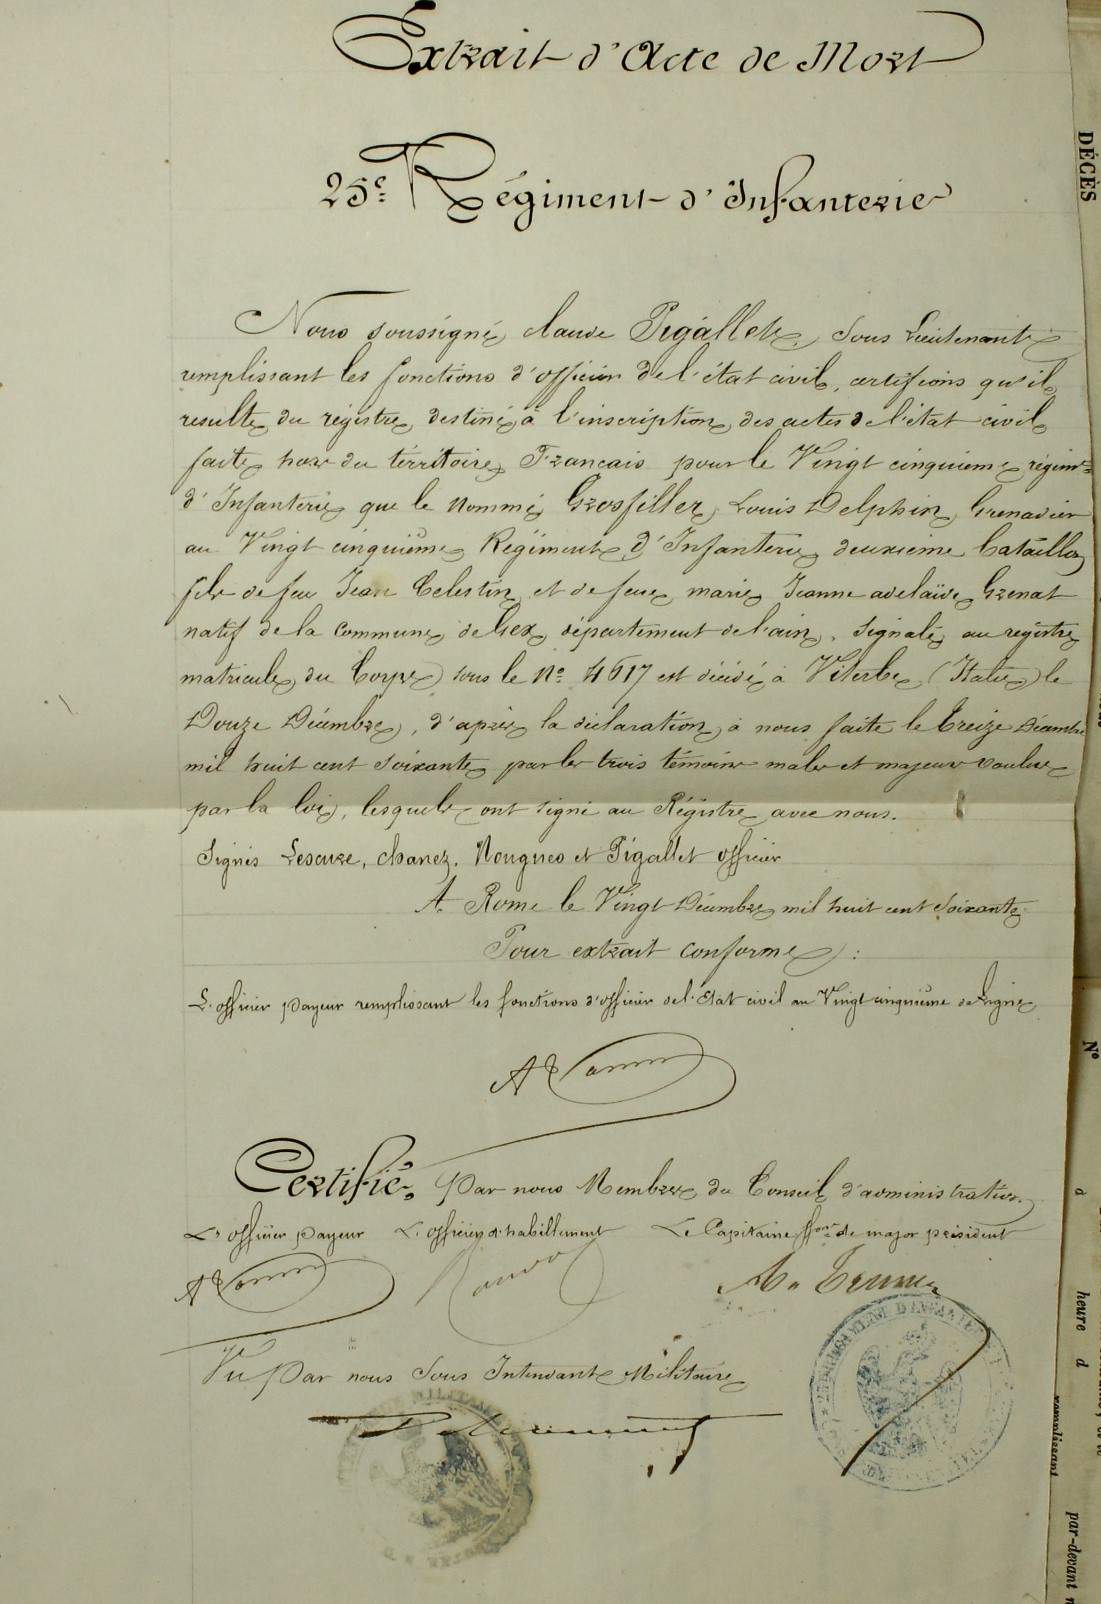 Extrait d'Acte de Mort
25e Régiment d'Infanterie
Nous soussigné, Claude Pigallet, Sous Lieutenant
remplissant les fonctions d'officier de l'état civil, certifions qu'il
resulte du régistre destiné à l'inscription des actes de l'état civil
faite hors du térritoire Francais pour le Vingt cinquième régimt
d'Infanterie que le nommé Grosfiller, Louis Delphin, Grenadier
au Vingt cinquième Régiment d'Infanterie deuxieme Bataillon
fils de feu Jean Celestin et de feue marie Jeanne adelaïde Grenat
natif de la Commune de Gex, département de l'ain, Signalé au registre
matricule du Corps sous le No 4617 est décédé à Viterbe (Italie) le
Douze Décembre, d'après la déclaration à nous faite le Treize Décembre
mil huit cent soixante par les trois témoins males et majeurs voulus
par la loi, lesquels ont signé au Régistre avec nous.
Signés Lescure, Chanez, Nougues et Pigallet officier
A Rome le Vingt Décembre mil huit cent soixante
Pour extrait conforme :
L'officier payeur remplissant les fonctions d'officier de l'Etat civil au Vingt cinquième de ligne
Certifié, par nous Membres du Conseil d'administration
L'officier payeur L'officier d'habillement Le Capitaine ffons de major président
Vu par nous Sous Intendant Militaire
DÉCÈS
No
à
heure d
remplissant
par-devant